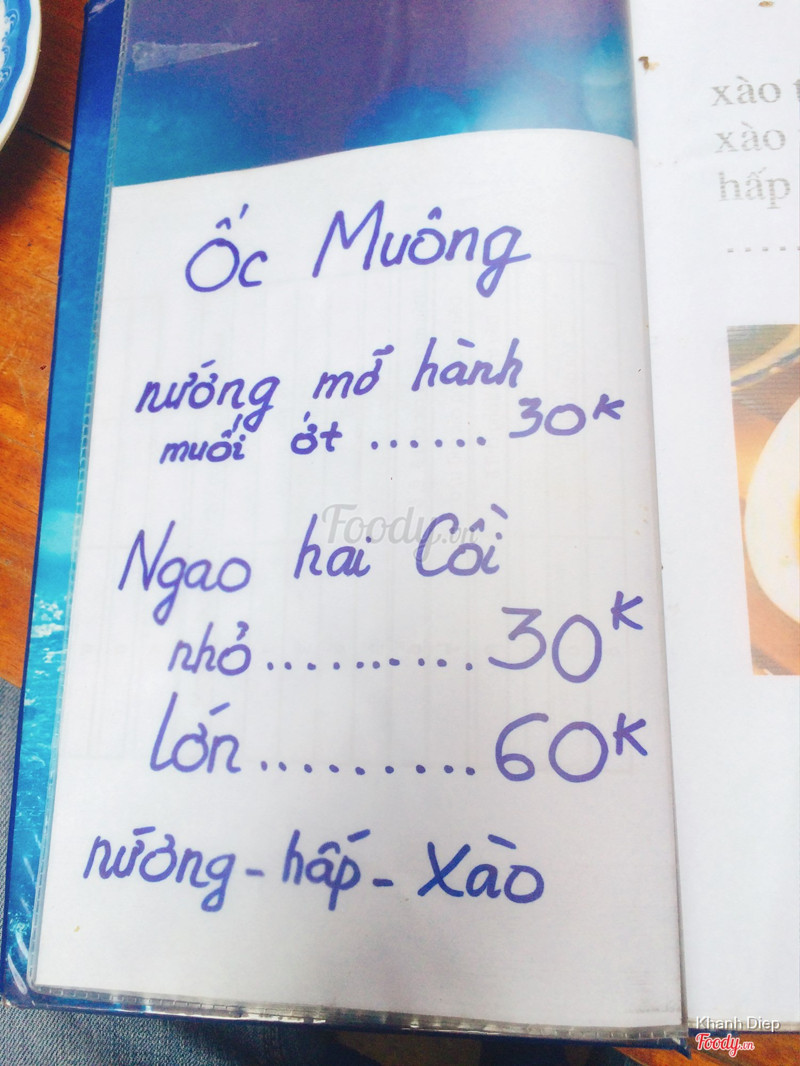 Ốc Muông
nướng mỡ hành
muối ớt ...... 30K
Ngao hai Cồi
nhỏ .......... 30K
lớn .......... 60K
nướng - hấp - Xào
xào
xào
hấp
Foody.vn
Khanh Diep
Foody.vn